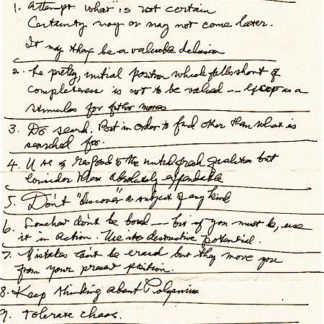 1. Attempt what is not certain
Certainty may or may not come later.
It may then be a valuable delusion
2. The pretty, initial position which falls short of
completeness is not to be valued — except as a
stimulus for further moves
3. Do search. But in order to find other than what is
searched for.
4. Use & respond to the initial fresh qualities but
consider them absolutely expendable
5. Don't "discover" a subject of any kind
6. Somehow don't be bored — but if you must be, use
it in action. Use its destructive potential.
7. Mistakes can't be erased but they move you
from your present position.
8. Keep thinking about Polyanna
9. Tolerate chaos.